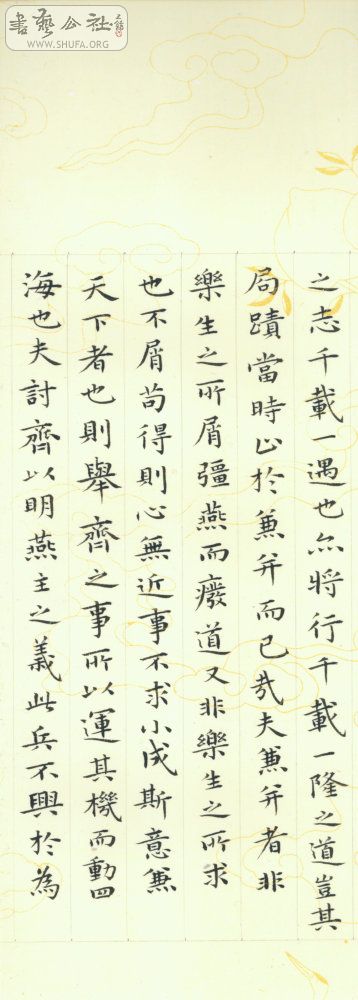 書藝公社
WWW.SHUFA.ORG
之志千載一遇也亦將行千載一隆之道豈其
局蹟當時止於兼并而已哉夫兼并者非
樂生之所屑彊燕而癈道又非樂生之所求
也不屑苟得則心無近事不求小成斯意兼
天下者也則舉齊之事所以運其機而動四
海也夫討齊以明燕主之義此兵不興於為